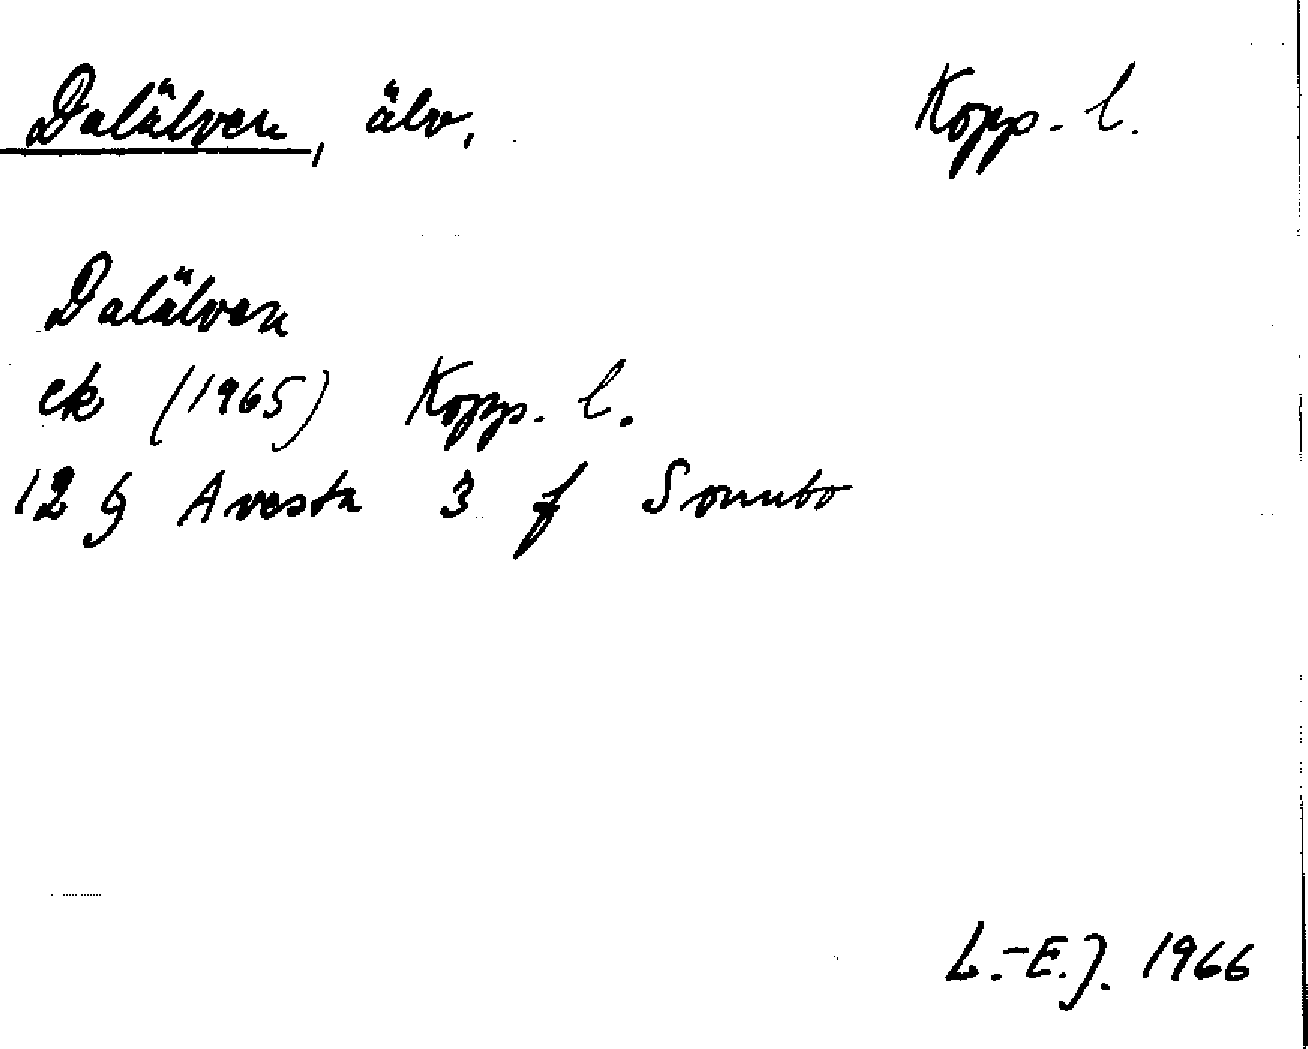 Dalälven, älv, Kopp. l.
Dalälven
ek (1965) Kopp. l.
12 G Avesta 3 f Sonnbo
L.-E.J. 1966